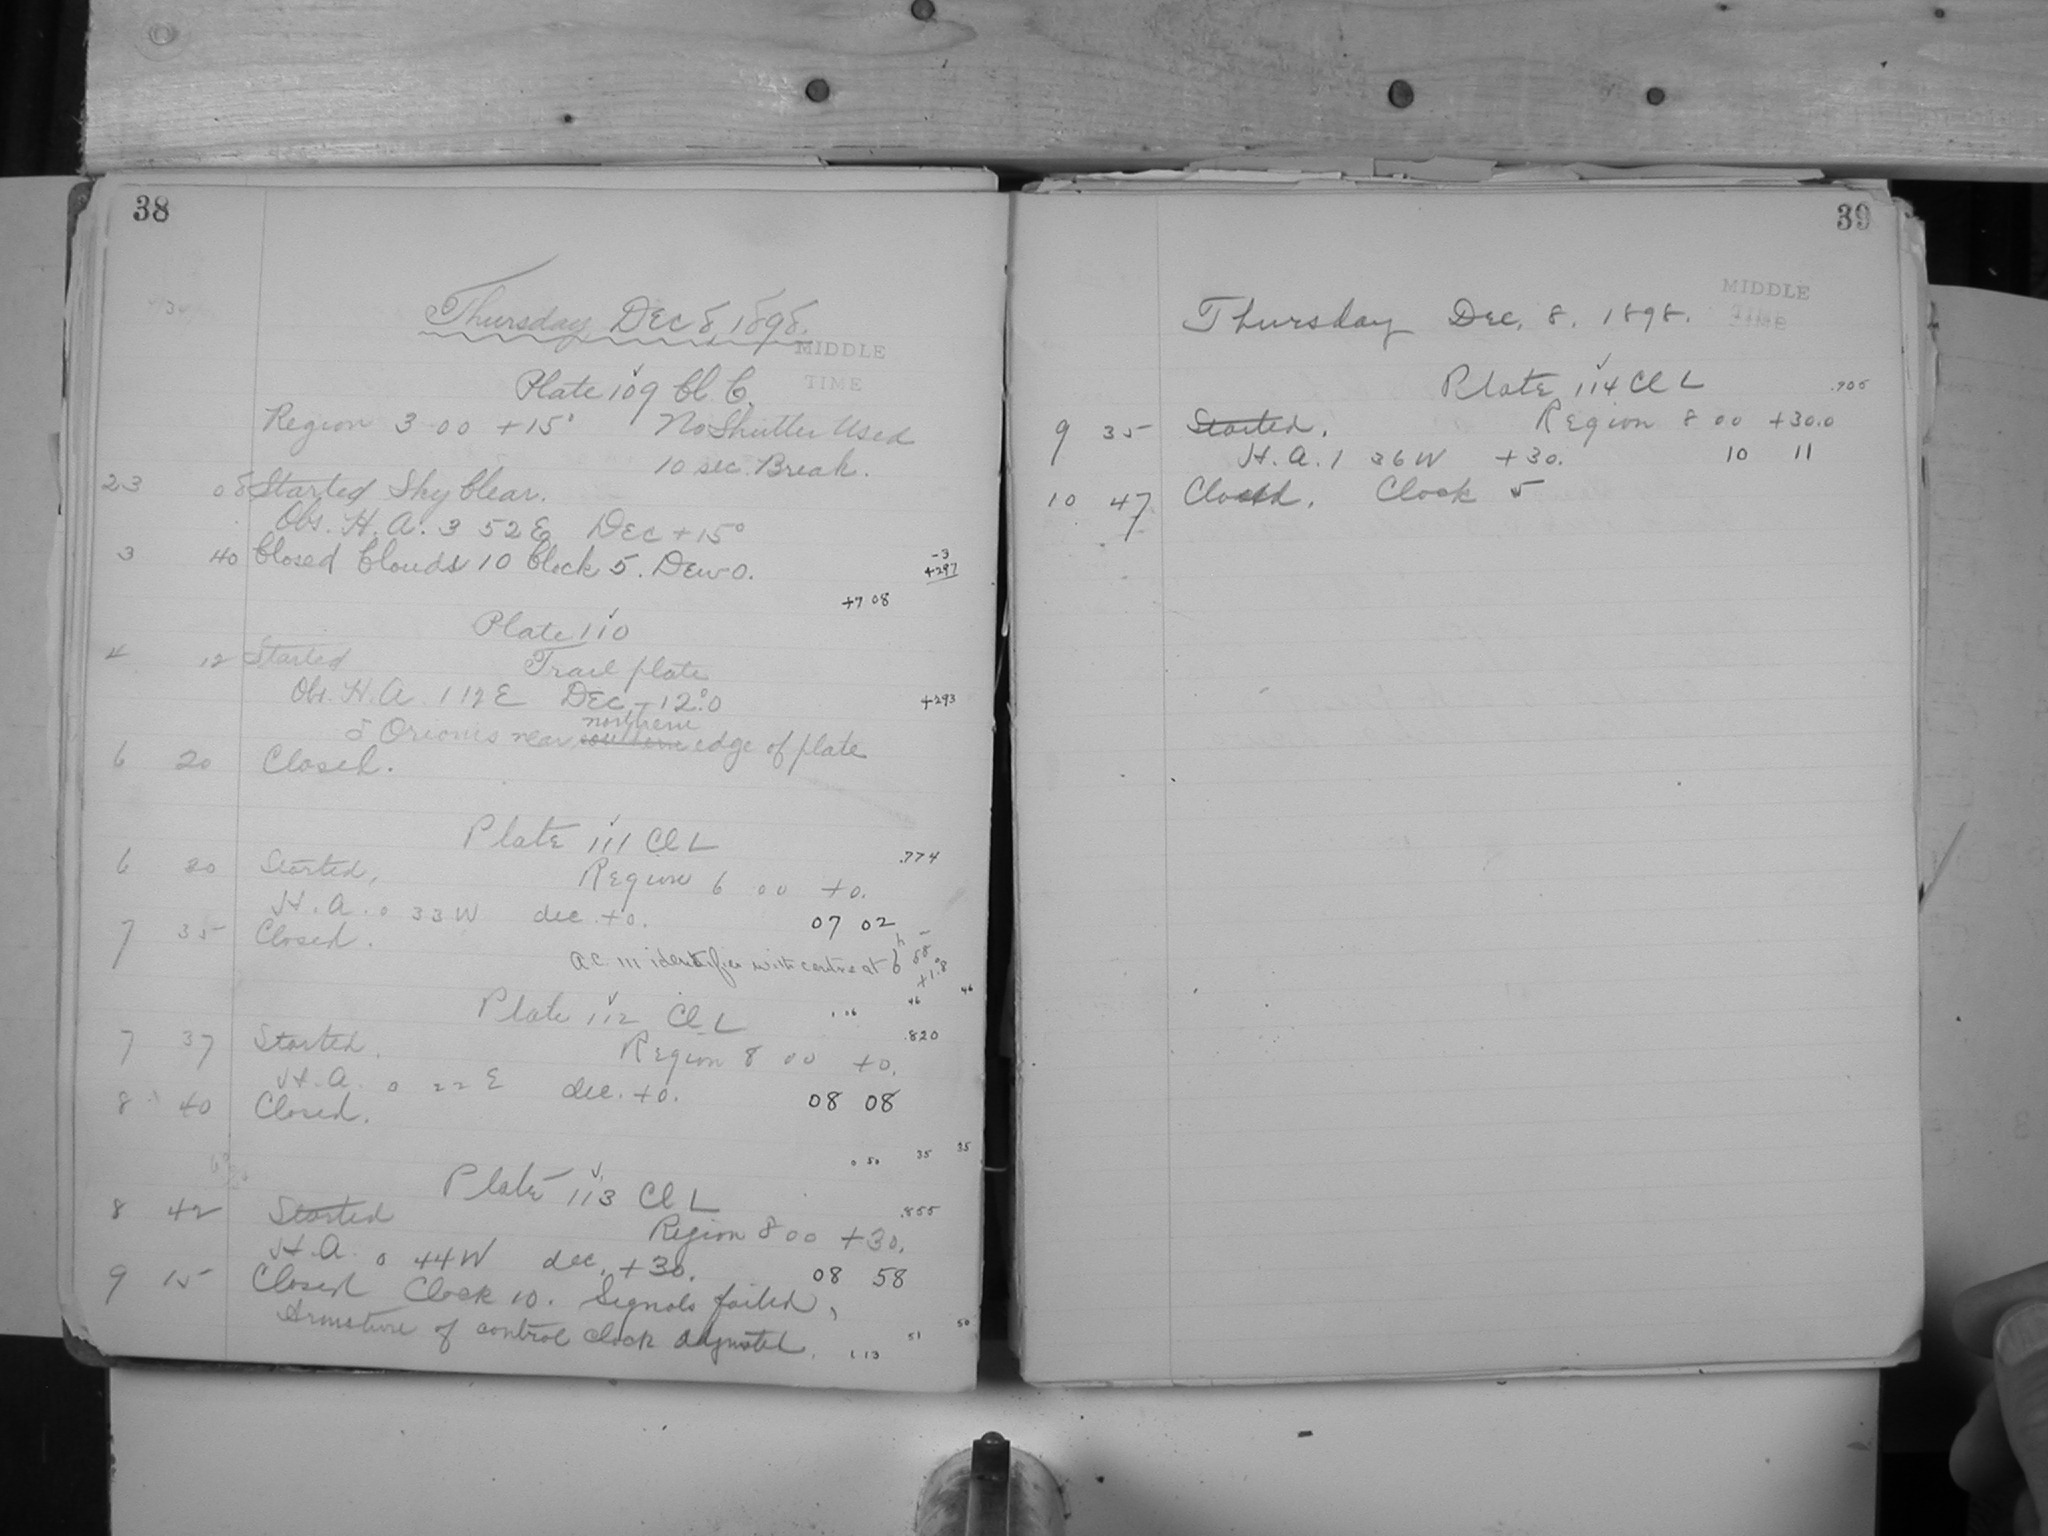 38
Thursday Dec 8, 1898.
MIDDLE
TIME
Plate 109 Cl. C.
Region 3 00 +15° No Shutter Used
10 sec. Break.
23 08 Started Sky Clear.
Obs. H. A. 3 52 E Dec +15°
3 40 Closed Clouds 10 Clock 5. Dew 0.
-3
+297
+7 08
Plate 110
4 12 Started Trail plate
Obs. H. A. 1 12 E Dec -12°.0
+293
northern
δ Orionis near southern edge of plate
6 20 Closed.
Plate 111 Cl L
.774
6 20 Started. Region 6 00 +0.
H. A. 0 33 W dec. +0.
07 02
7 35 Closed.
A.C. 111 identifies with centre at 6h 58
+1.8
Plate 112 Cl L
1 06 46 46
.820
7 37 Started. Region 8 00 +0.
H. A. 0 22 E dec. +0.
08 08
8 40 Closed.
0 50 35 35
Plate 113 Cl L
.855
8 42 Started Region 8 00 +30.
H. A. 0 44 W dec. +30.
08 58
9 15 Closed Clock 10. Signals failed,
Armature of control clock adjusted.
1 13 51 50
39
MIDDLE
TIME
Thursday Dec. 8. 1898.
Plate 114 Cl L
.905
9 35 Started. Region 8 00 +30.0
H. A. 1 36 W +30.
10 11
10 47 Closed. Clock 5